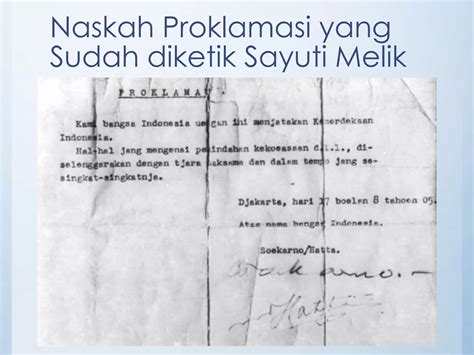 Naskah Proklamasi yang
Sudah diketik Sayuti Melik
P R O K L A M A
Kami bangsa Indonesia dengan ini menjatakan Kemerdekaan
Indonesia.
Hal-hal jang mengenai pemindahan kekoeasaan d.l.l., di-
selenggarakan dengan tjara saksama dan dalam tempo jang se-
singkat-singkatnja.
Djakarta, hari 17 boelan 8 tahoen 05.
Atas nama bangsa Indonesia.
Soekarno/Hatta.
Soekarno.-
Hatta